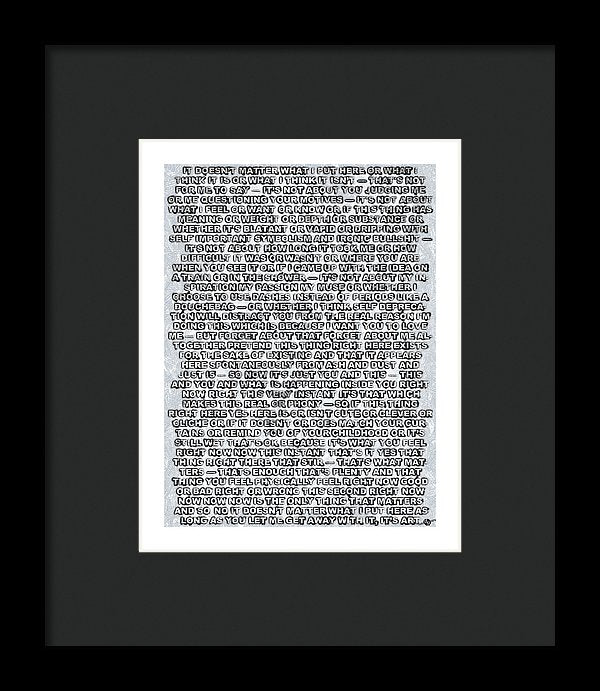 IT DOESN'T MATTER WHAT I PUT HERE OR WHAT I
THINK IT IS OR WHAT I THINK IT ISN'T — THAT'S NOT
FOR ME TO SAY — IT'S NOT ABOUT YOU JUDGING ME
OR ME QUESTIONING YOUR MOTIVES — IT'S NOT ABOUT
WHAT I FEEL OR WANT OR KNOW OR IF THIS THING HAS
MEANING OR WEIGHT OR DEPTH OR SUBSTANCE OR
WHETHER IT'S BLATANT OR VAPID OR DRIPPING WITH
SELF IMPORTANT SYMBOLISM AND IRONIC BULLSHIT —
IT'S NOT ABOUT HOW LONG IT TOOK ME OR HOW
DIFFICULT IT WAS OR WASN'T OR WHERE YOU ARE
WHEN YOU SEE IT OR IF I CAME UP WITH THE IDEA ON
A TRAIN OR IN THE SHOWER — IT'S NOT ABOUT MY IN
SPIRATION MY PASSION MY MUSE OR WHETHER I
CHOOSE TO USE DASHES INSTEAD OF PERIODS LIKE A
DOUCHEBAG — OR WHETHER I THINK SELF DEPRECA
TION WILL DISTRACT YOU FROM THE REAL REASON I'M
DOING THIS WHICH IS BECAUSE I WANT YOU TO LOVE
ME — BUT FORGET ABOUT THAT FORGET ABOUT ME AL
TOGETHER PRETEND THIS THING RIGHT HERE EXISTS
FOR THE SAKE OF EXISTING AND THAT IT APPEARS
HERE SPONTANEOUSLY FROM ASH AND DUST AND
JUST IS — SO NOW IT'S JUST YOU AND THIS — THIS
AND YOU AND WHAT IS HAPPENING INSIDE YOU RIGHT
NOW RIGHT THIS VERY INSTANT IT'S THAT WHICH
MAKES THIS REAL OR PHONY — SO IF THIS THING
RIGHT HERE YES HERE IS OR ISN'T CUTE OR CLEVER OR
CLICHE OR IF IT DOESN'T OR DOES MATCH YOUR CUR
TAINS OR REMIND YOU OF YOUR CHILDHOOD OR IT'S
STILL WET THAT'S OK BECAUSE IT'S WHAT YOU FEEL
RIGHT NOW NOW THIS INSTANT THAT'S IT YES THAT
THING RIGHT THERE THAT STIR — THAT'S WHAT MAT
TERS — THAT'S ENOUGH THAT'S PLENTY AND THAT
THING YOU FEEL PHYSICALLY FEEL RIGHT NOW GOOD
OR BAD RIGHT OR WRONG THIS SECOND RIGHT NOW
NOW NOW NOW IS THE ONLY THING THAT MATTERS
AND SO NO IT DOESN'T MATTER WHAT I PUT HERE AS
LONG AS YOU LET ME GET AWAY WITH IT, IT'S ART